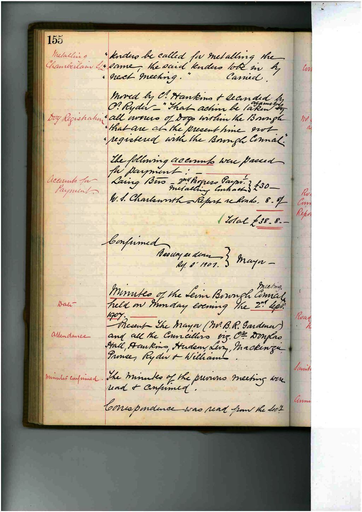 155
Metalling
Chamberlain St.
"tenders be called for metalling the
same, the said tenders to be in by
next meeting." Carried.
Moved by Cr. Hankins & seconded by
Cr. Ryder - "That action be taken against
Dog Registration
all owners of Dogs within the Borough
that are at the present time not
registered with the Borough Council."
Accounts for
Payment
The following accounts were passed
for payment:-
Laing Bros - 2nd Progress Paymt.
Metalling Contract } £30 -
W. S. Charlesworth - Report re levels. 8. 8/-
Total £38. 8. -
Confirmed
1907. } Mayor
Minutes of the Levin Borough Council Meeting
Date
held on Monday evening the 2nd Sept.
1907.
attendance
Present The Mayor (Mr B. R. Gardener)
and all the Councillors viz. Crs Douglas,
Hall, Hankins, Hudson, Levy, Mackenzie,
Prouse, Ryder & Williams
minutes confirmed
The minutes of the previous meeting were
read & confirmed.
Correspondence was read from the